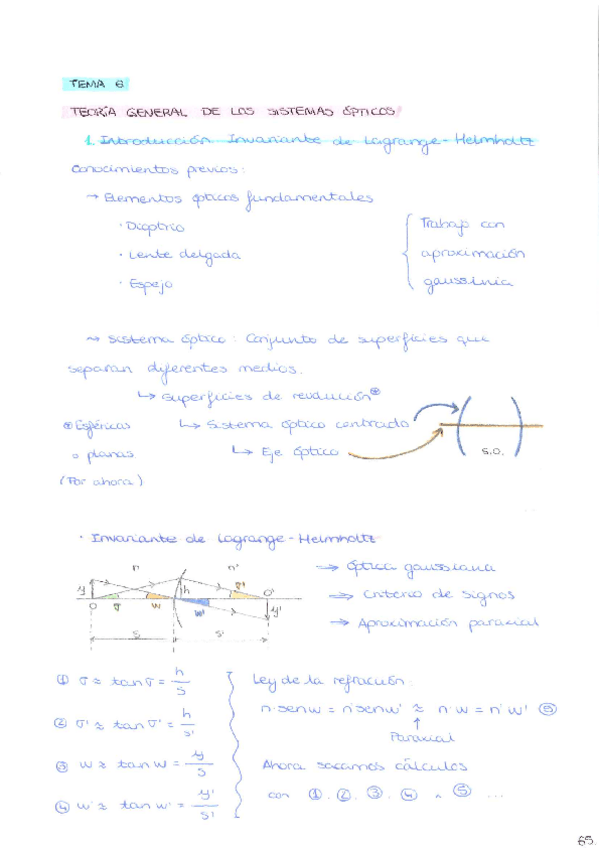 TEMA 6
TEORÍA GENERAL DE LOS SISTEMAS ÓPTICOS
1. Introducción. Invariante de Lagrange-Helmholtz
Conocimientos previos:
→ Elementos ópticos fundamentales
· Dioptrio
· Lente delgada
· Espejo
Trabajo con
aproximación
gaussinia
→ Sistema óptico: Conjunto de superficies que
separan diferentes medios.
↳ Superficies de revolución *
* Esféricas
o planas
(Por ahora)
↳ Sistema óptico centrado
↳ Eje óptico
S.O.
· Invariante de Lagrange-Helmholtz
n n'
y O σ w h w' σ' O' y'
s s'
→ Óptica gaussiana
→ Criterio de signos
→ Aproximación paraxial
① σ ≈ tan σ = h/s
② σ' ≈ tan σ' = h/s'
③ w ≈ tan w = y/s
④ w' ≈ tan w' = y'/s'
Ley de la refracción:
n·senw = n'senw' ≈ n·w = n'w' ⑤
↑
Paraxial
Ahora sacamos cálculos
con ①, ②, ③, ④ y ⑤ ...
65